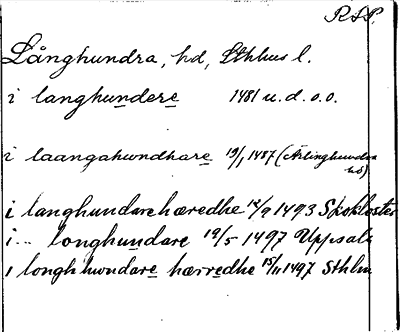 RAP.
Långhundra, hd, Sthlms l.
i langhundere 1481 u.d. o.o.
i laangahwndhare 19/1 1487 (Ärlinghundra hd)
i langhundarehæredhe 12/9 1493 Skokloster
i... longhundare 19/5 1497 Uppsala
i longhhwndare hærredhe 15/11 1497 Sthlm